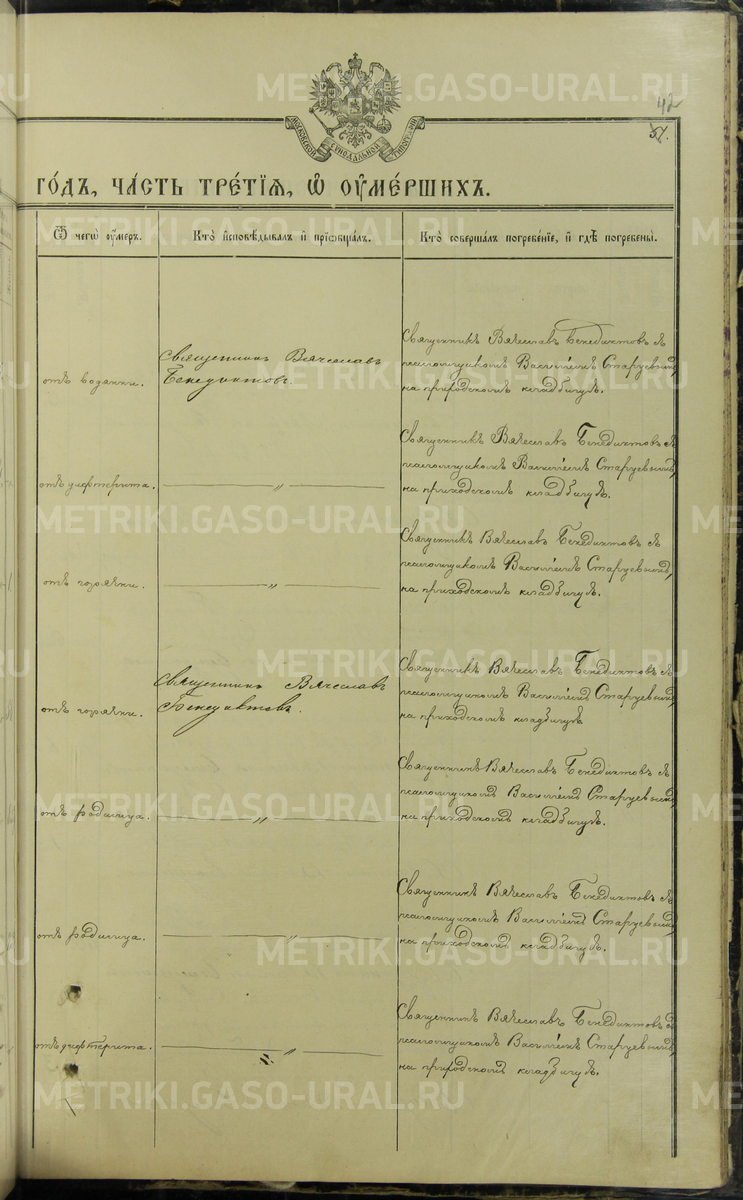 METRIKI.GASO-URAL.RU
42
51.
МОСКОВСКОЙ СѴНОДАЛЬНОЙ ТИПОГРАФІИ
ГО́ДЪ, ЧА́СТЬ ТРЕ́ТІѦ, Ѽ ОУ҆МЕ́РШИХЪ.
Ѿ чегѡ̀ оу҆́меръ.
Кто̀ и҆сповѣ́дывалъ и҆ приѡбща́лъ.
Кто̀ соверша́лъ погребе́нїе, и҆ гдѣ̀ погребены̀.
отъ водянки.
Священникъ Вячеславъ
Бенедиктовъ.
Священникъ Вячеславъ Бенедиктовъ съ
псаломщикомъ Василіемъ Старцевымъ,
на приходскомъ кладбищѣ.
отъ дифтерита.
— " —
Священникъ Вячеславъ Бенедиктовъ съ
псаломщикомъ Василіемъ Старцевымъ,
на приходскомъ кладбищѣ.
METRIKI.GASO-URAL.RU
отъ горячки.
— " —
Священникъ Вячеславъ Бенедиктовъ съ
псаломщикомъ Василіемъ Старцевымъ,
на приходскомъ кладбищѣ.
отъ горячки.
Священникъ Вячеславъ
Бенедиктовъ.
Священникъ Вячеславъ Бенедиктовъ съ
псаломщикомъ Василіемъ Старцевымъ,
на приходскомъ кладбищѣ
отъ родимца.
— " —
Священникъ Вячеславъ Бенедиктовъ съ
псаломщикомъ Василіемъ Старцевымъ,
на приходскомъ кладбищѣ.
отъ родимца.
— " —
Священникъ Вячеславъ Бенедиктовъ съ
псаломщикомъ Василіемъ Старцевымъ,
на приходскомъ кладбищѣ.
отъ дифтерита.
— " —
Священникъ Вячеславъ Бенедиктовъ съ
псаломщикомъ Василіемъ Старцевымъ,
на приходскомъ кладбищѣ.
METRIKI.GASO-URAL.RU